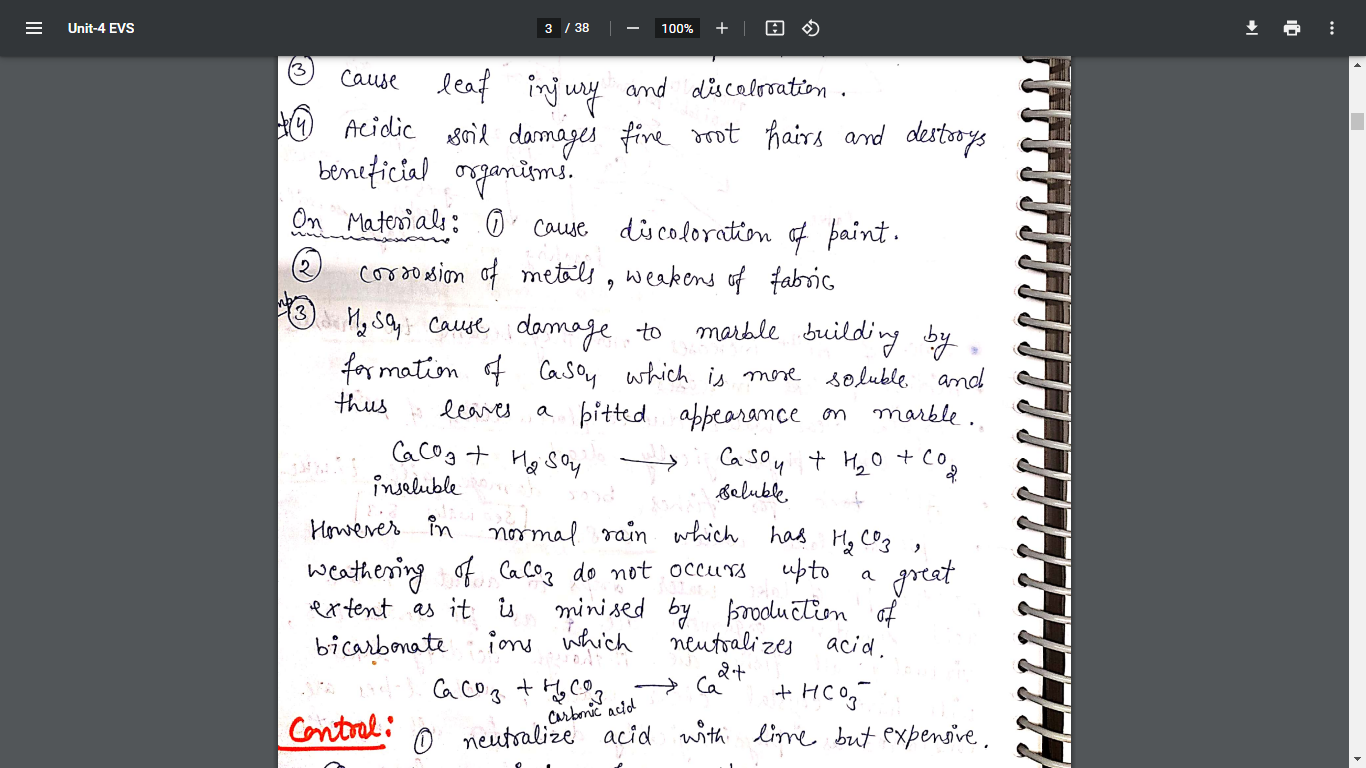 Unit-4 EVS
3 / 38
100%
③ cause leaf injury and discoloration.
④ Acidic soil damages fine root hairs and destroys
beneficial organisms.
On Materials: ① cause discoloration of paint.
② corrosion of metals, weakens of fabric
③ H₂SO₄ cause damage to marble building by
formation of CaSO₄ which is more soluble and
thus leaves a pitted appearance on marble.
CaCO₃ + H₂SO₄ → CaSO₄ + H₂O + CO₂
insoluble soluble
However in normal rain which has H₂CO₃,
weathering of CaCO₃ do not occurs upto a great
extent as it is minised by production of
bicarbonate ions which neutralizes acid.
CaCO₃ + H₂CO₃ → Ca²⁺ + HCO₃⁻
carbonic acid
Control: ① neutralize acid with lime but expensive.